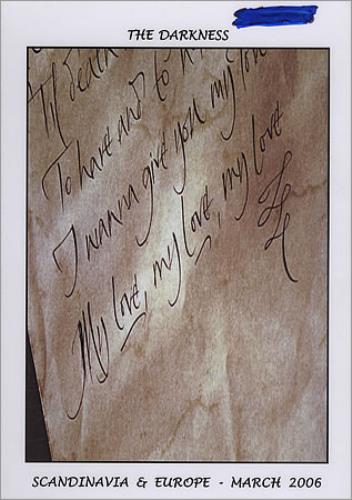 THE DARKNESS
Til death
To have and to h
I wanna give you my love
My love, my love, my love
SCANDINAVIA & EUROPE - MARCH 2006